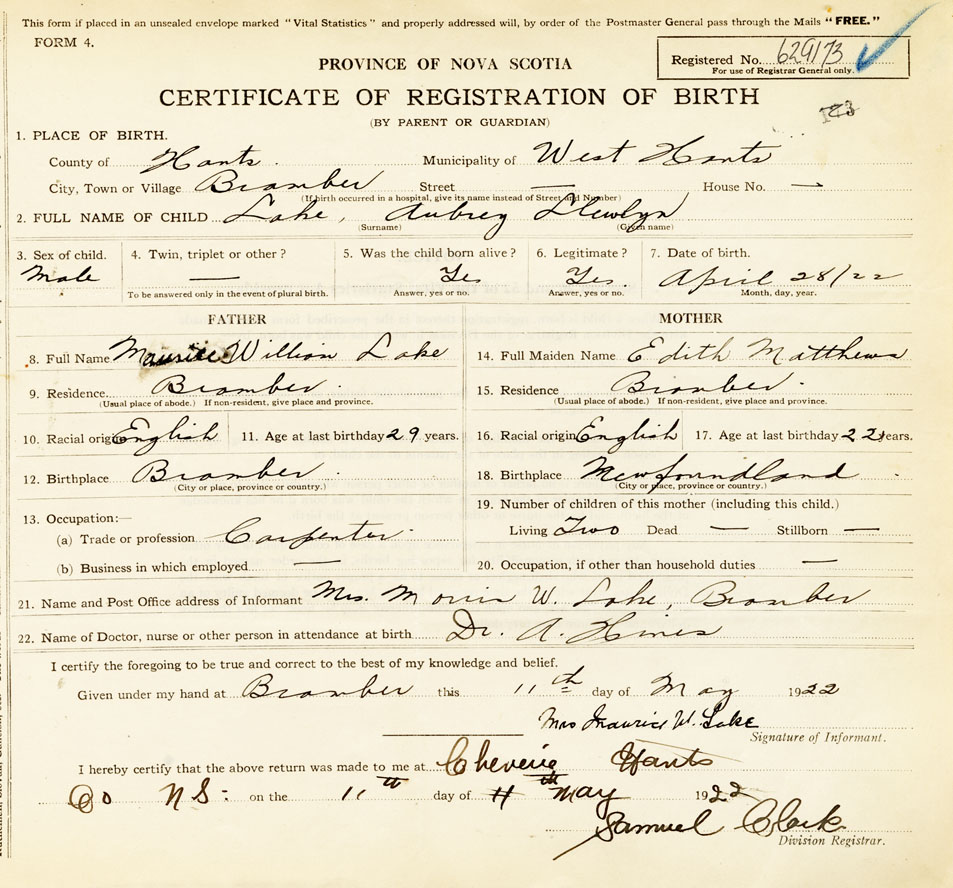 This form if placed in an unsealed envelope marked "Vital Statistics" and properly addressed will, by order of the Postmaster General pass through the Mails "FREE."
FORM 4.
Registered No. 629173
For use of Registrar General only.
PROVINCE OF NOVA SCOTIA
CERTIFICATE OF REGISTRATION OF BIRTH
(BY PARENT OR GUARDIAN)
1. PLACE OF BIRTH.
County of Hants. Municipality of West Hants
City, Town or Village Bramber Street — House No. —
(If birth occurred in a hospital, give its name instead of Street and Number)
2. FULL NAME OF CHILD Lake, Aubrey Llewlyn
(Surname) (Given name)
3. Sex of child. 4. Twin, triplet or other? 5. Was the child born alive? 6. Legitimate? 7. Date of birth.
Male — Yes Yes. April 28/22
To be answered only in the event of plural birth. Answer, yes or no. Answer, yes or no. Month, day, year.
FATHER MOTHER
8. Full Name Maurice William Lake 14. Full Maiden Name Edith Matthews
9. Residence. Bramber. 15. Residence Bramber.
(Usual place of abode.) If non-resident, give place and province. (Usual place of abode.) If non-resident, give place and province.
10. Racial origin English 11. Age at last birthday 29 years. 16. Racial origin English 17. Age at last birthday 22 years.
12. Birthplace Bramber. 18. Birthplace Newfoundland.
(City or place, province or country.) (City or place, province or country.)
13. Occupation:— 19. Number of children of this mother (including this child.)
(a) Trade or profession Carpenter. Living Two Dead — Stillborn —
(b) Business in which employed — 20. Occupation, if other than household duties —
21. Name and Post Office address of Informant Mrs. Morris W. Lake, Bramber
22. Name of Doctor, nurse or other person in attendance at birth Dr. A. Hines
I certify the foregoing to be true and correct to the best of my knowledge and belief.
Given under my hand at Bramber this 11th day of May 1922
Mrs Maurice W. Lake
Signature of Informant.
I hereby certify that the above return was made to me at Cheverie Hants
Co N S: on the 11th day of May 1922
Samuel Clark
Division Registrar.